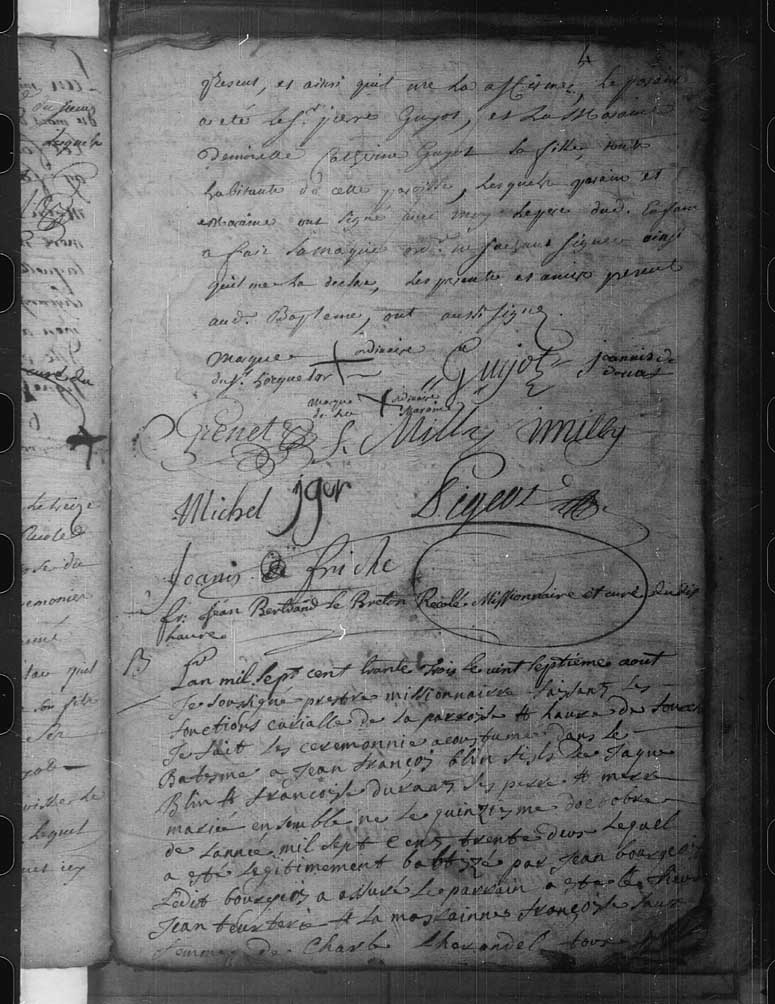 4
present, et ainsi quil me la affirmé, le parain
a eté le Sr. piere Guyot, et La Maraine
Demoiselle Catherine Guyot sa fille, touts
habitants de cette paroisse, Lesquels parain et
Maraine ont signé avec moy Le pere dud. Enfant
a fait sa marque ordre. ne sachant signer ainsi
quil me la declaré, Les parents et amis present
aud. Bapteme, ont aussi signé.
marque ordinaire
Guyot
joannis de
marque de la ordinaire Maraine
Grenet S. Milly imilly
Michel jger Pigeot
Joanis de friche
fr. Jean Bertrand le Breton Recolé Missionnaire et curé du dis
haure
B
Lan mil sept cent trante trois le vint septieme aout
Je sousigné prestre missionnaire faisant les
fonctions curialle de la parroisse et haure de
Je fait les ceremonnie acoustume dans le
Batesme a Jean françois blin fisls de Jaque
Blin et françoise durand ses pere et mere
marié ensemble ne le quinziesme doctobre
de lannee mil sept cent trente deus lequel
a esté legitimement batisse par Jean bourgeois
Ledit bourgeois a assuré le parrain a esté le sieur
Jean et la marainne françoise
femme de Charle